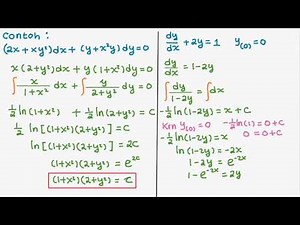 Contoh :
(2x + xy²)dx + (y + x²y)dy = 0
x(2+y²)dx + y(1+x²)dy = 0
∫ x/(1+x²) dx + ∫ y/(2+y²) dy = 0
½ ln(1+x²) + ½ ln(2+y²) = C
½ ln[(1+x²)(2+y²)] = C
ln[(1+x²)(2+y²)] = 2C
(1+x²)(2+y²) = e^2C
(1+x²)(2+y²) = C
dy/dx + 2y = 1 y(0) = 0
dy/dx = 1-2y
∫ dy/(1-2y) = ∫ dx
-½ ln(1-2y) = x + C
Krn y(0) = 0 → -½ ln(1) = 0 + C
-½ ln(1-2y) = x 0 = 0 + C
ln(1-2y) = -2x
1-2y = e^-2x
1-e^-2x = 2y